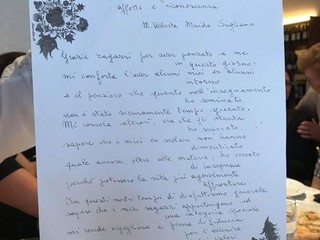 affetto e riconoscenza
M. Roberta Maida Sugliano
Grazie ragazzi per aver pensato a me
in questo giorno:
mi conforta l'aver alunni miei ex alunni
intorno
e il pensiero che quanto nell'insegnamento
ho seminato
non è stato sicuramente tempo sprecato.
Mi consola altresì, ora che gli ottanta
ho superato
sapere che i miei ex scolari non hanno
dimenticato
quale amore oltre alle materie, ho cercato
di insegnare
perché potessero la vita più agevolmente
affrontare.
In questi nostri tempi di disfattismo generale
sapere che i miei ragazzi appartengono ad
una categoria speciale
mi rende orgogliosa e piena di fiducia
per l'avvenire